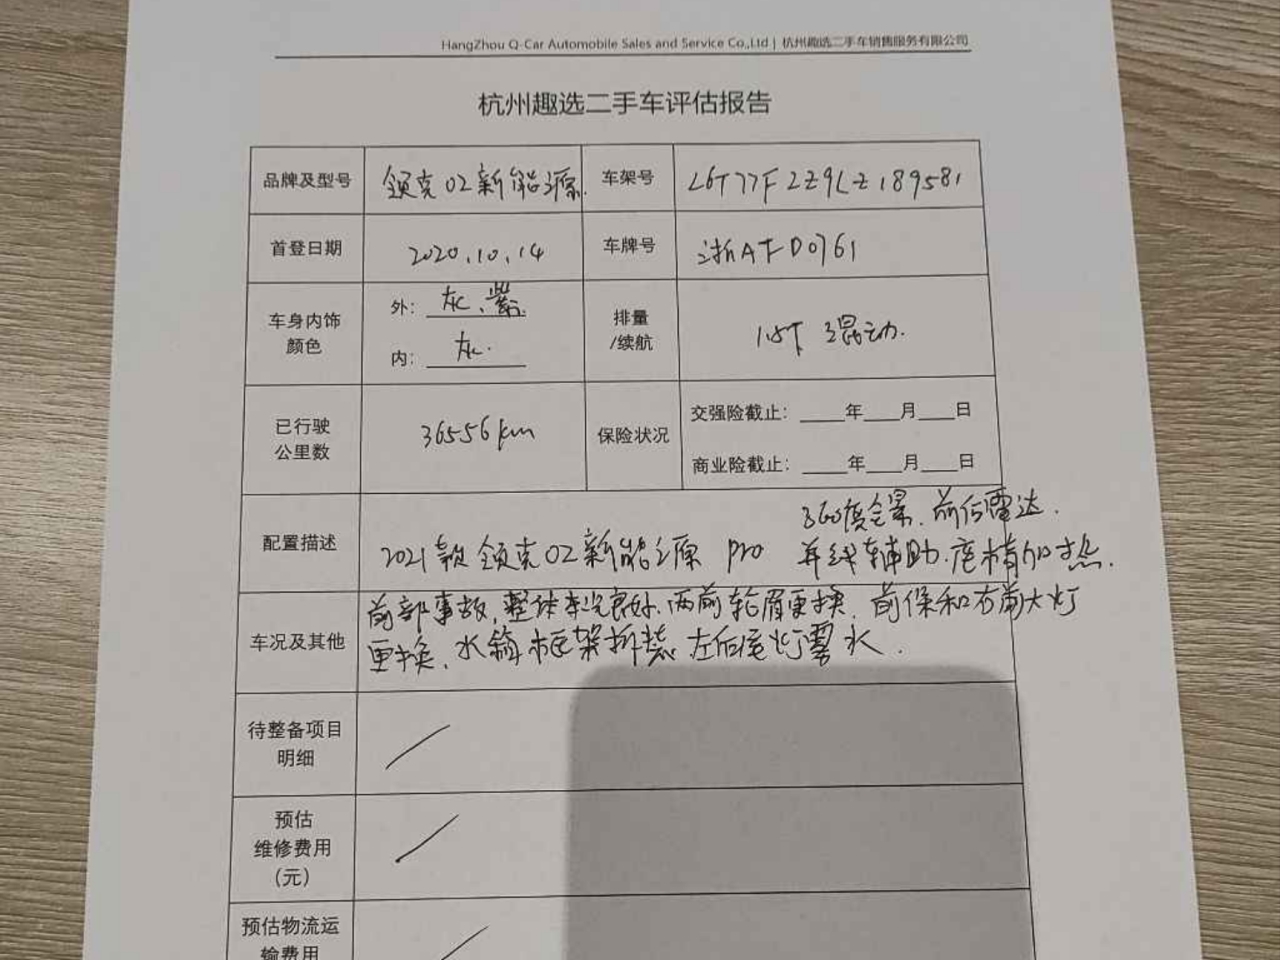 HangZhou Q-Car Automobile Sales and Service Co.,Ltd | 杭州趣选二手车销售服务有限公司
杭州趣选二手车评估报告
品牌及型号 领克02新能源 车架号 L6T77F2Z9LZ189581
首登日期 2020.10.14 车牌号 浙AFD0761
车身内饰颜色 外: 灰、紫 内: 灰. 排量/续航 1.5T 混动.
已行驶公里数 36556km 保险状况 交强险截止: ____年___月___日
商业险截止: ____年___月___日
360度全景. 前后雷达.
配置描述 2021款领克02新能源 pro 并线辅助.座椅加热.
前部事故, 整体车况良好. 两前轮眉更换. 前保和右前大灯
车况及其他 更换. 水箱框架拆装 左后尾灯雾水.
待整备项目
明细
预估
维修费用
(元)
预估物流运
输费用